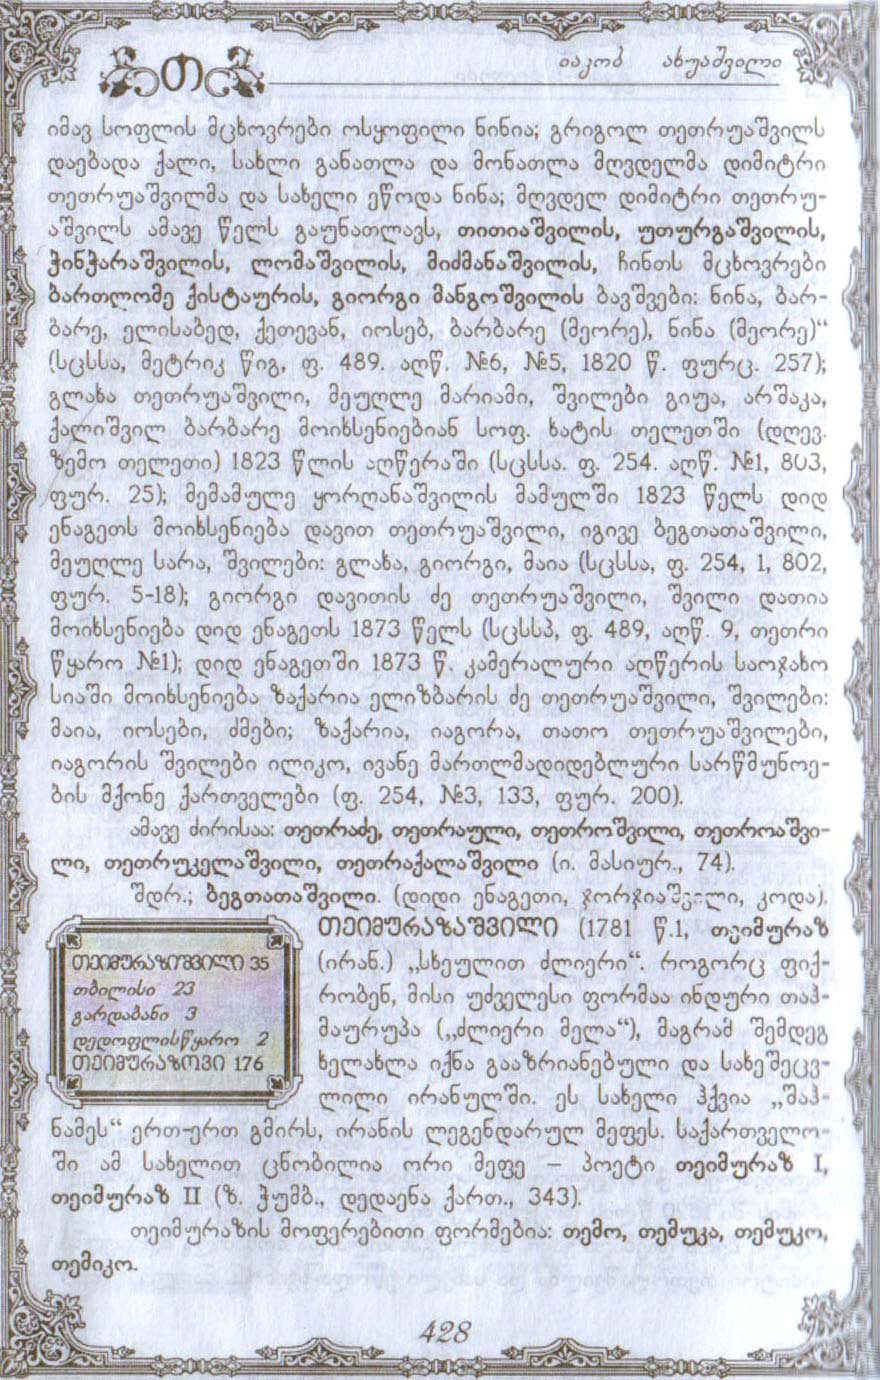 თ
იაკობ ახუაშვილი
იმავ სოფლის მცხოვრები ოსყოფილი ნინია; გრიგოლ თეთრუაშვილს
დაებადა ქალი, სახლი განათლა და მონათლა მღვდელმა დიმიტრი
თეთრუაშვილმა და სახელი ეწოდა ნინა; მღვდელ დიმიტრი თეთრუ-
აშვილს ამავე წელს გაუნათლავს, თითიაშვილის, უთურგაშვილის,
ჭინჭარაშვილის, ლომაშვილის, მიძმანაშვილის, ჩინთს მცხოვრები
ბართლომე ქისტაურის, გიორგი მანგოშვილის ბავშვები: ნინა, ბარ-
ბარე, ელისაბედ, ქეთევან, იოსებ, ბარბარე (მეორე), ნინა (მეორე)“
(სცსსა, მეტრიკ წიგ, ფ. 489. აღწ. №6, №5, 1820 წ. ფურც. 257);
გლახა თეთრუაშვილი, მეუღლე მარიამი, შვილები გიუა, არშაკა,
ქალიშვილ ბარბარე მოიხსენიებიან სოფ. ხატის თელეთში (დღევ.
ზემო თელეთი) 1823 წლის აღწერაში (სცსსა. ფ. 254. აღწ. №1, 803,
ფურ. 25); მემამულე ყორღანაშვილის მამულში 1823 წელს დიდ
ენაგეთს მოიხსენიება დავით თეთრუაშვილი, იგივე ბეგთათაშვილი,
მეუღლე სარა, შვილები: გლახა, გიორგი, მაია (სცსსა, ფ. 254, 1, 802,
ფურ. 5-18); გიორგი დავითის ძე თეთრუაშვილი, შვილი დათია
მოიხსენიება დიდ ენაგეთს 1873 წელს (სცსსპ, ფ. 489, აღწ. 9, თეთრი
წყარო №1); დიდ ენაგეთში 1873 წ. კამერალური აღწერის საოჯახო
სიაში მოიხსენიება ზაქარია ელიზბარის ძე თეთრუაშვილი, შვილები:
მაია, იოსები, ძმები; ზაქარია, იაგორა, თათო თეთრუაშვილები,
იაგორის შვილები ილიკო, ივანე მართლმადიდებლური სარწმუნოე-
ბის მქონე ქართველები (ფ. 254, №3, 133, ფურ. 200).
ამავე ძირისაა: თეთრაძე, თეთრაული, თეთროშვილი, თეთროაშვი-
ლი, თეთრუკელაშვილი, თეთრაქალაშვილი (ი. მასიურ., 74).
შდრ.; ბეგთათაშვილი. (დიდი ენაგეთი, ჯორჯიაშვილი, კოდა).
თეიმურაზიშვილი 35
თბილისი 23
გარდაბანი 3
დედოფლისწყარო 2
თეიმურაზოვი 176
თეიმურაზაშვილი (1781 წ.1, თეიმურაზ
(ირან.) „სხეულით ძლიერი“. როგორც ფიქ-
რობენ, მისი უძველესი ფორმაა ინდური თაჰ-
მაურუპა („ძლიერი მელა“), მაგრამ შემდეგ
ხელახლა იქნა გააზრიანებული და სახეშეცვ-
ლილი ირანულში. ეს სახელი ჰქვია „შაჰ-
ნამეს“ ერთ-ერთ გმირს, ირანის ლეგენდარულ მეფეს. საქართველო-
ში ამ სახელით ცნობილია ორი მეფე – პოეტი თეიმურაზ I,
თეიმურაზ II (ზ. ჭუმბ., დედაენა ქართ., 343).
თეიმურაზის მოფერებითი ფორმებია: თემო, თემუკა, თემუკო,
თემიკო.
428